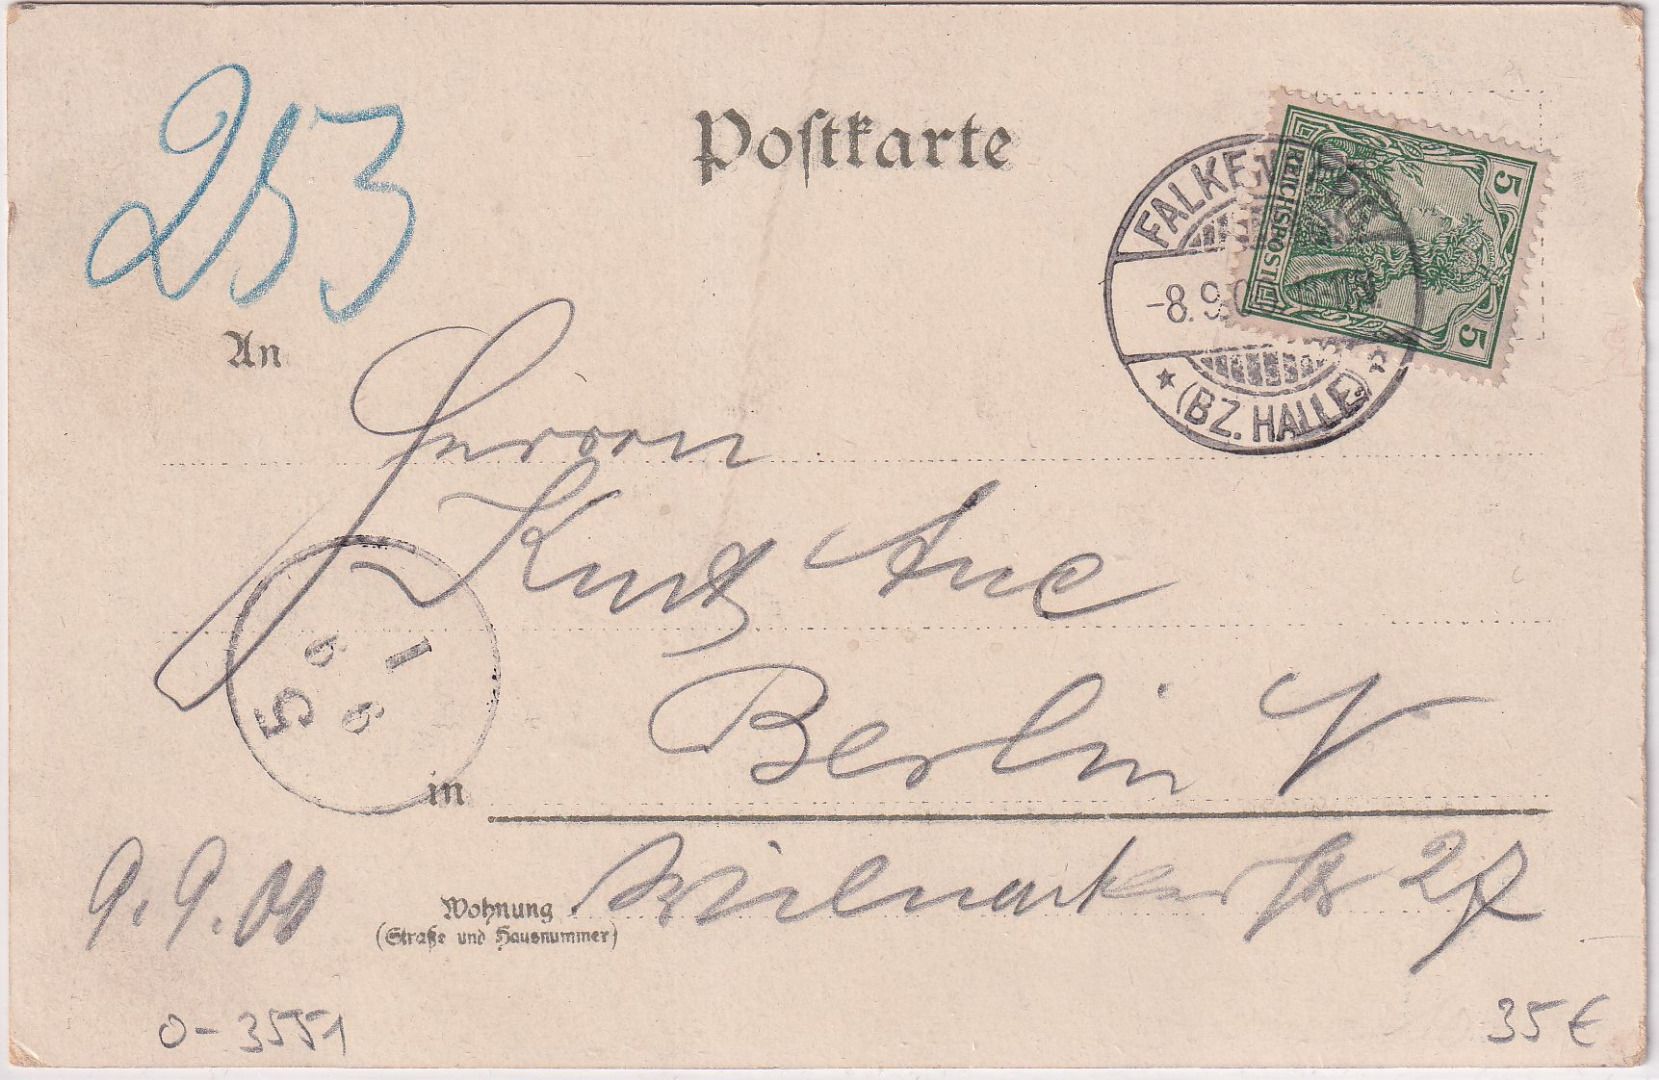 253
Postkarte
5
REICHSPOST
5
FALKEN
-8.9.0
(BZ. HALLE)
An
Herrn
Kurt Aue
1
9
9
5
Berlin
in
9.9.00
Wohnung
str 27
(Straße und Hausnummer)
0-3551
35 €